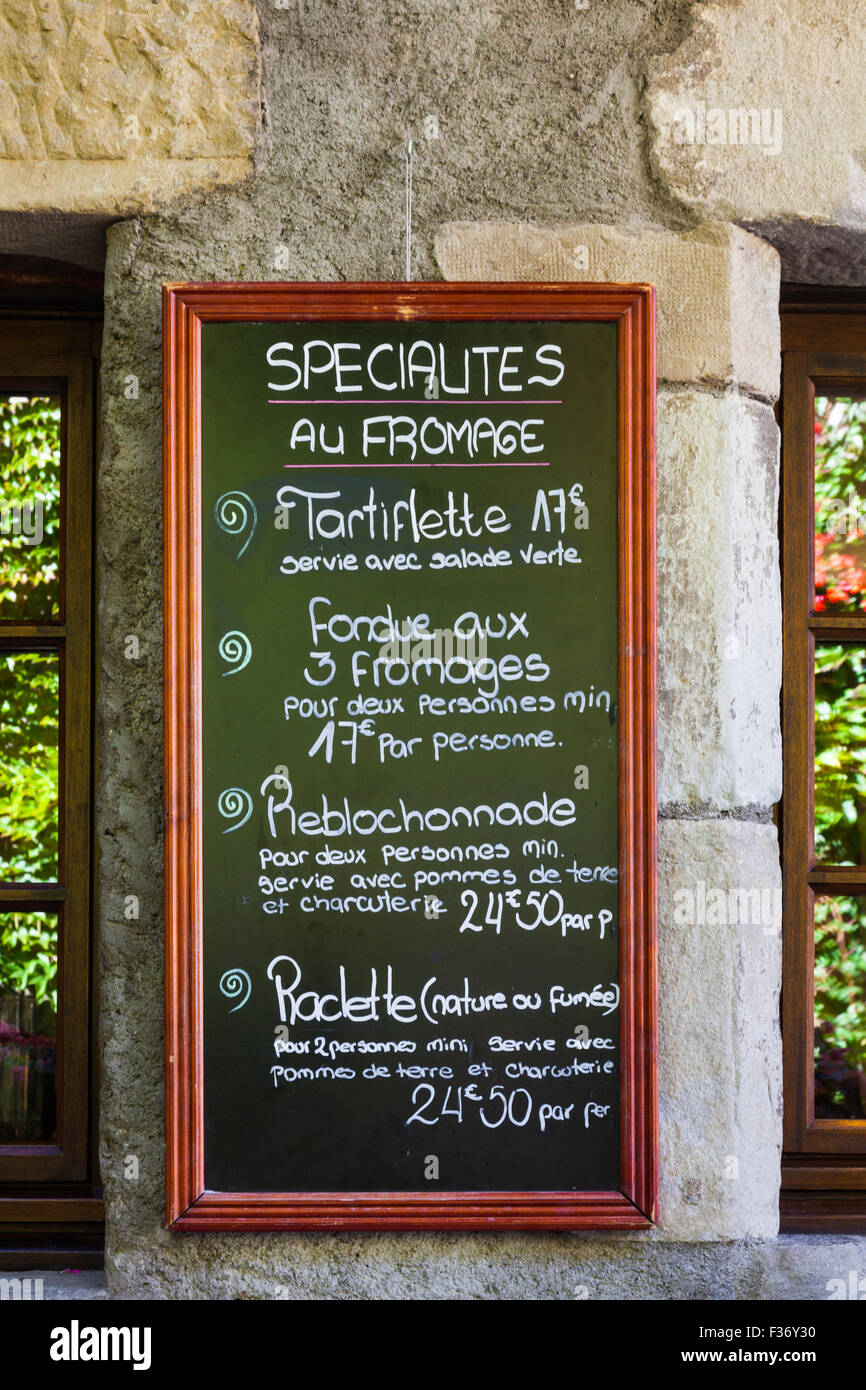 SPECIALITES
AU FROMAGE
Tartiflette 17€
servie avec salade verte
Fondue aux
3 fromages
pour deux personnes min.
17€ par personne.
Reblochonnade
pour deux personnes min.
servie avec pommes de terre
et charcuterie 24€50 par p
Raclette (nature ou fumée)
pour 2 personnes mini servie avec
pommes de terre et charcuterie
24€50 par per
alamy
Image ID: F36Y30
www.alamy.com